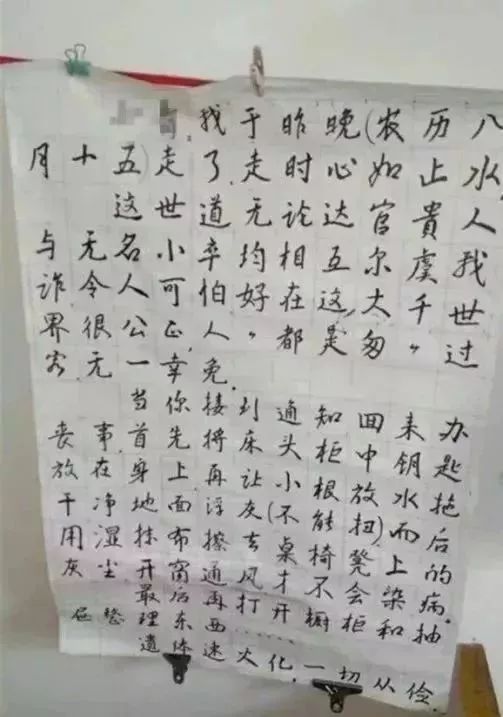 我于昨晚(农历八
月十五)走了,走时心如止水,
这世道无论达官贵人
与无名小卒均相互尔虞我
诈,令人可怕.好在这大千世
界很公正,人人都是"匆匆"过
客,无一幸免.
当你接到通知回来办
丧事,首先将床头柜中钥匙
放在身上再让小根放水拖
干净地面浮灰(不能扭)而后
用湿抹布擦去桌椅凳上的
灰尘开窗通风才不会染病.
最后再打开橱柜和抽
屉整理东西……
遗体速火化,一切从俭.